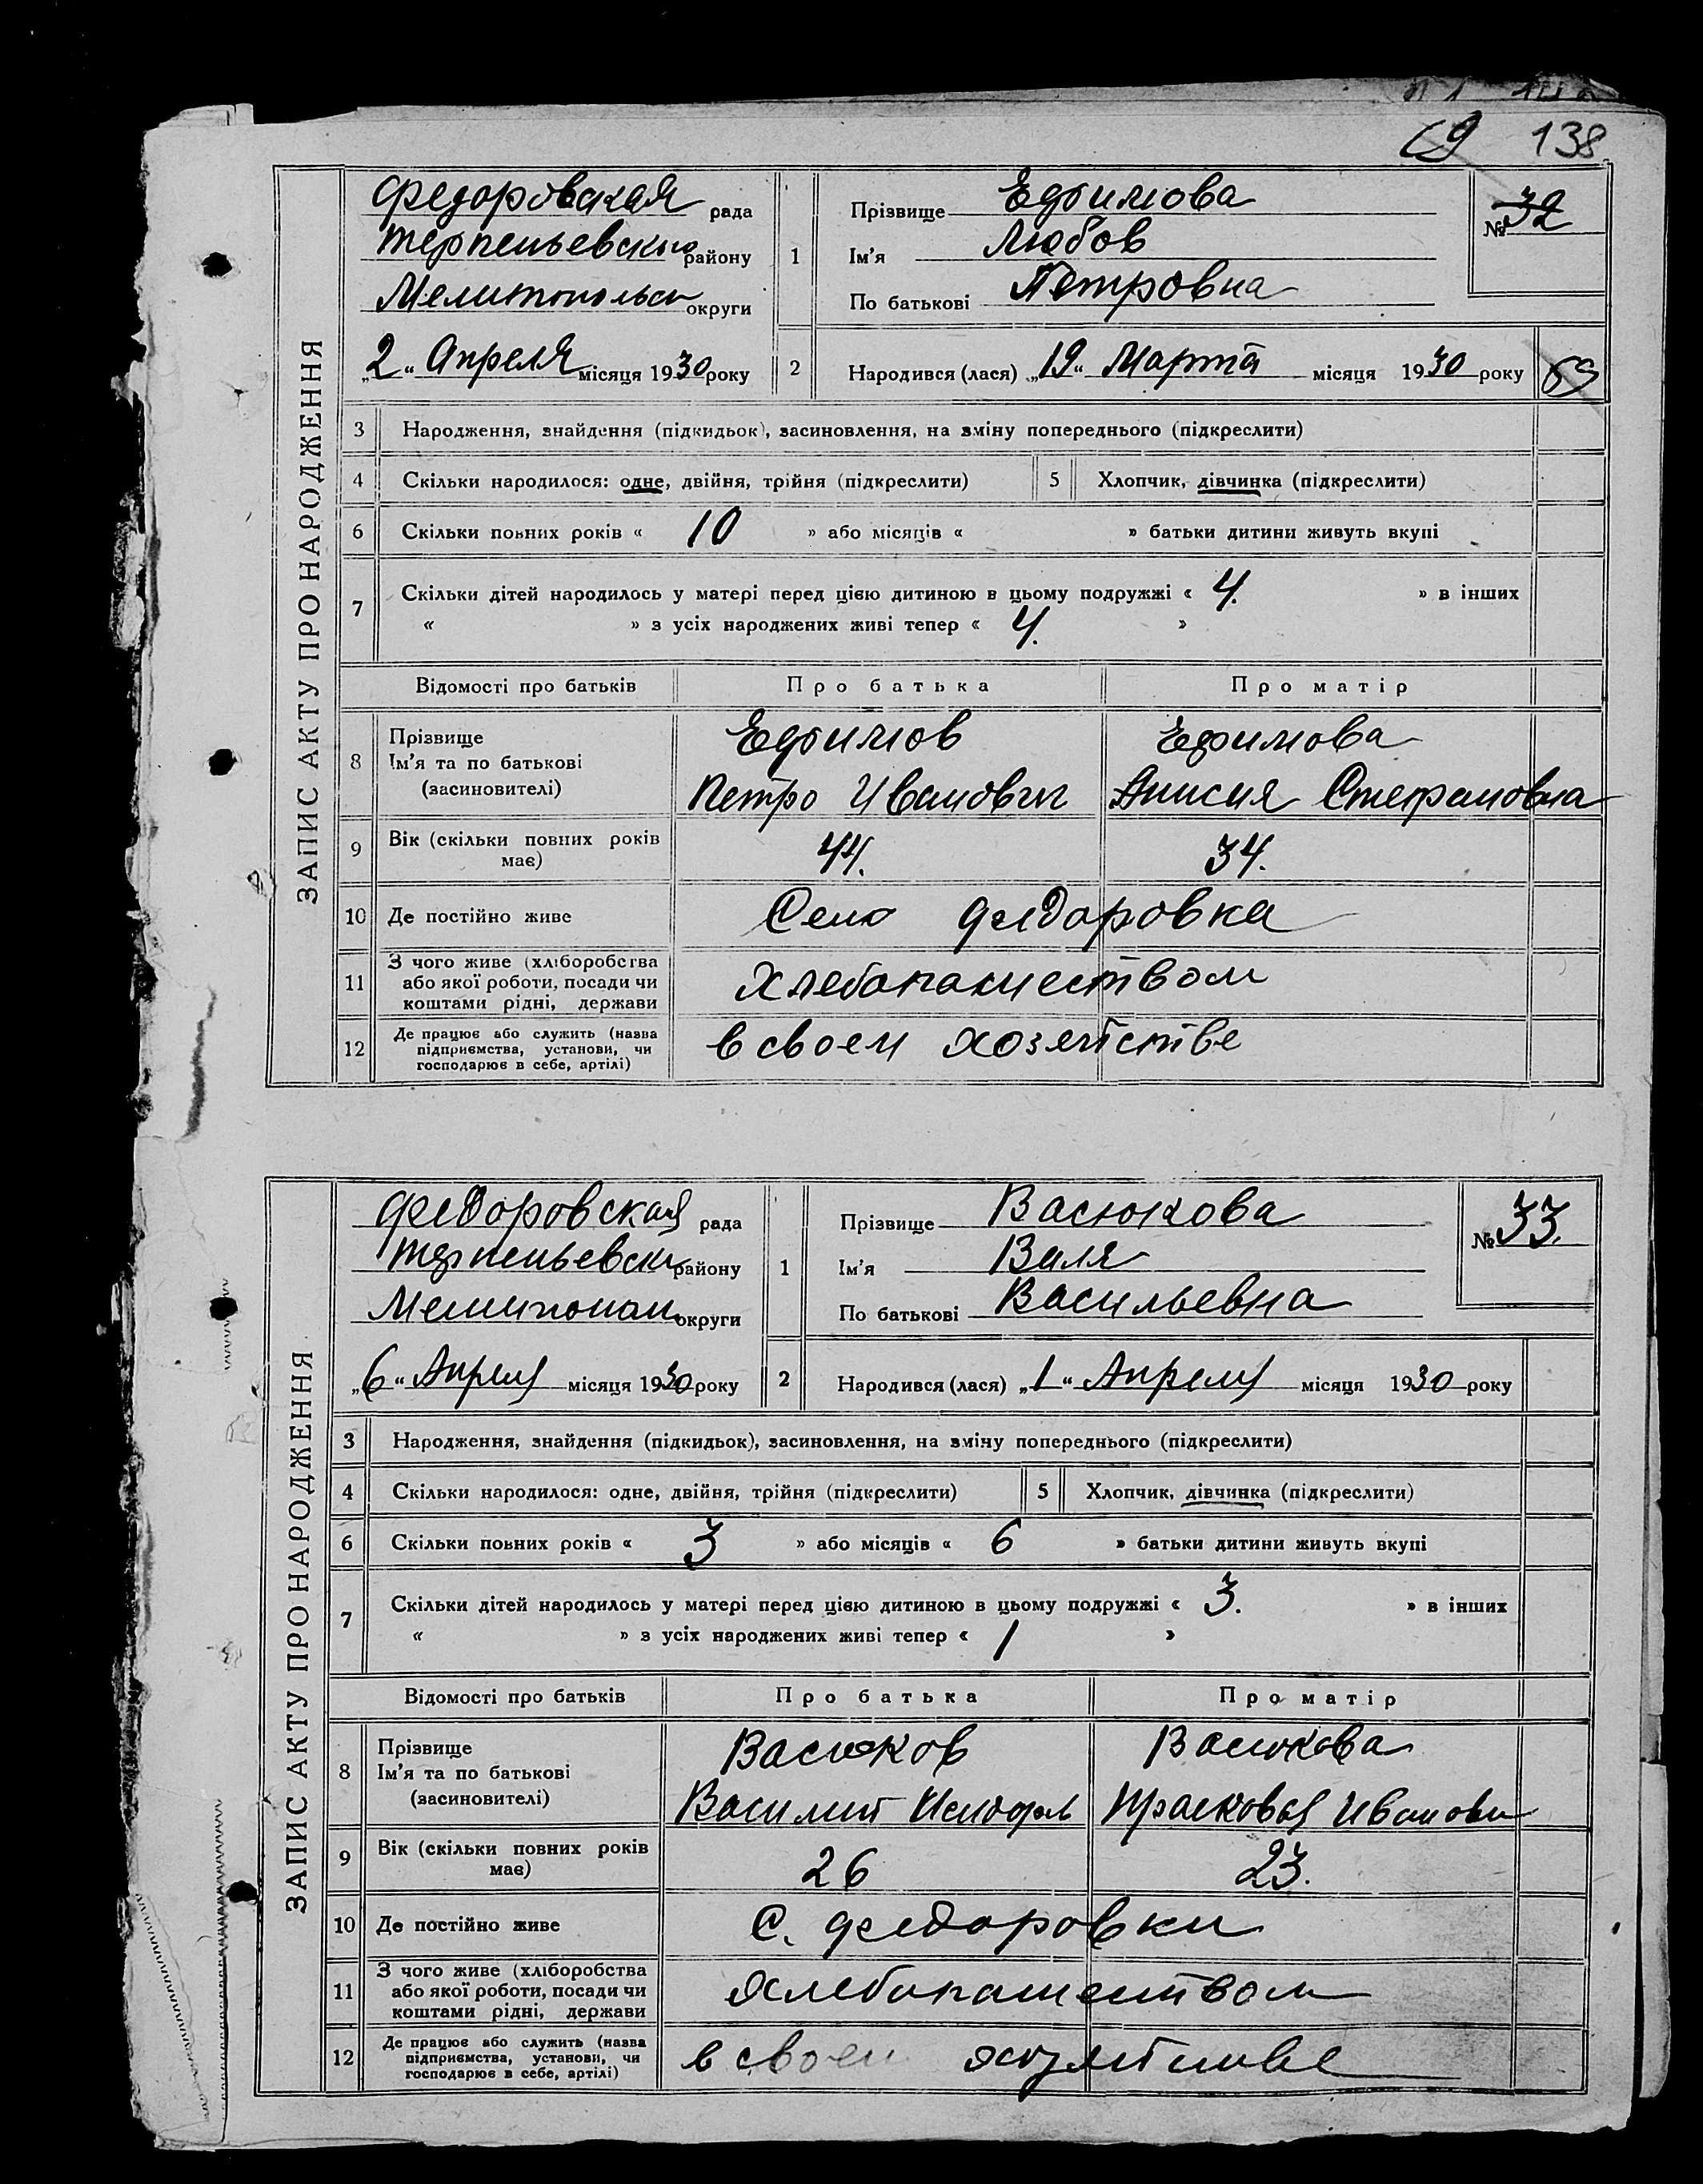 69 138
ЗАПИС АКТУ ПРО НАРОДЖЕННЯ
Федоровская рада
Терпеньевского району
Мелитопольск округи
„2“ Апреля місяця 1930 року
1
Прізвище Ефимова
Ім'я Любов
По батькові Петровна
№ 32
2
Народився (лася) „19“ Марта місяця 1930 року
69
3 Народження, знайдення (підкидьок), засиновлення, на зміну попереднього (підкреслити)
4 Скільки народилося: одне, двійня, трійня (підкреслити) 5 Хлопчик, дівчинка (підкреслити)
6 Скільки повних років « 10 » або місяців « » батьки дитини живуть вкупі
7 Скільки дітей народилось у матері перед цією дитиною в цьому подружжі « 4. » в інших
« » з усіх народжених живі тепер « 4. »
Відомості про батьків Про батька Про матір
8 Прізвище
Ім'я та по батькові
(засиновителі)
Ефимов
Петро Иванович
Ефимова
Анисия Стефановна
9 Вік (скільки повних років
має)
44. 34.
10 Де постійно живе Село Федоровка
11 З чого живе (хліборобства
або якої роботи, посади чи
коштами рідні, держави
Хлебопашеством
12 Де працює або служить (назва
підприємства, установи, чи
господарює в себе, артілі)
в своем хозяйстве
ЗАПИС АКТУ ПРО НАРОДЖЕННЯ
Федоровская рада
Терпеньевски району
Мелитопол округи
„6“ Апреля місяця 1930 року
1
Прізвище Васюкова
Ім'я Валя
По батькові Васильевна
№ 33.
2
Народився (лася) „1“ Апреля місяця 1930 року
3 Народження, знайдення (підкидьок), засиновлення, на зміну попереднього (підкреслити)
4 Скільки народилося: одне, двійня, трійня (підкреслити) 5 Хлопчик, дівчинка (підкреслити)
6 Скільки повних років « 3 » або місяців « 6 » батьки дитини живуть вкупі
7 Скільки дітей народилось у матері перед цією дитиною в цьому подружжі « 3. » в інших
« » з усіх народжених живі тепер « 1 »
Відомості про батьків Про батька Про матір
8 Прізвище
Ім'я та по батькові
(засиновителі)
Васюков
Василий
Васюкова
Прасковая Иванови
9 Вік (скільки повних років
має)
26 23.
10 Де постійно живе С. Федоровки
11 З чого живе (хліборобства
або якої роботи, посади чи
коштами рідні, держави
Хлебопашеством
12 Де працює або служить (назва
підприємства, установи, чи
господарює в себе, артілі)
в своем хозяйстве